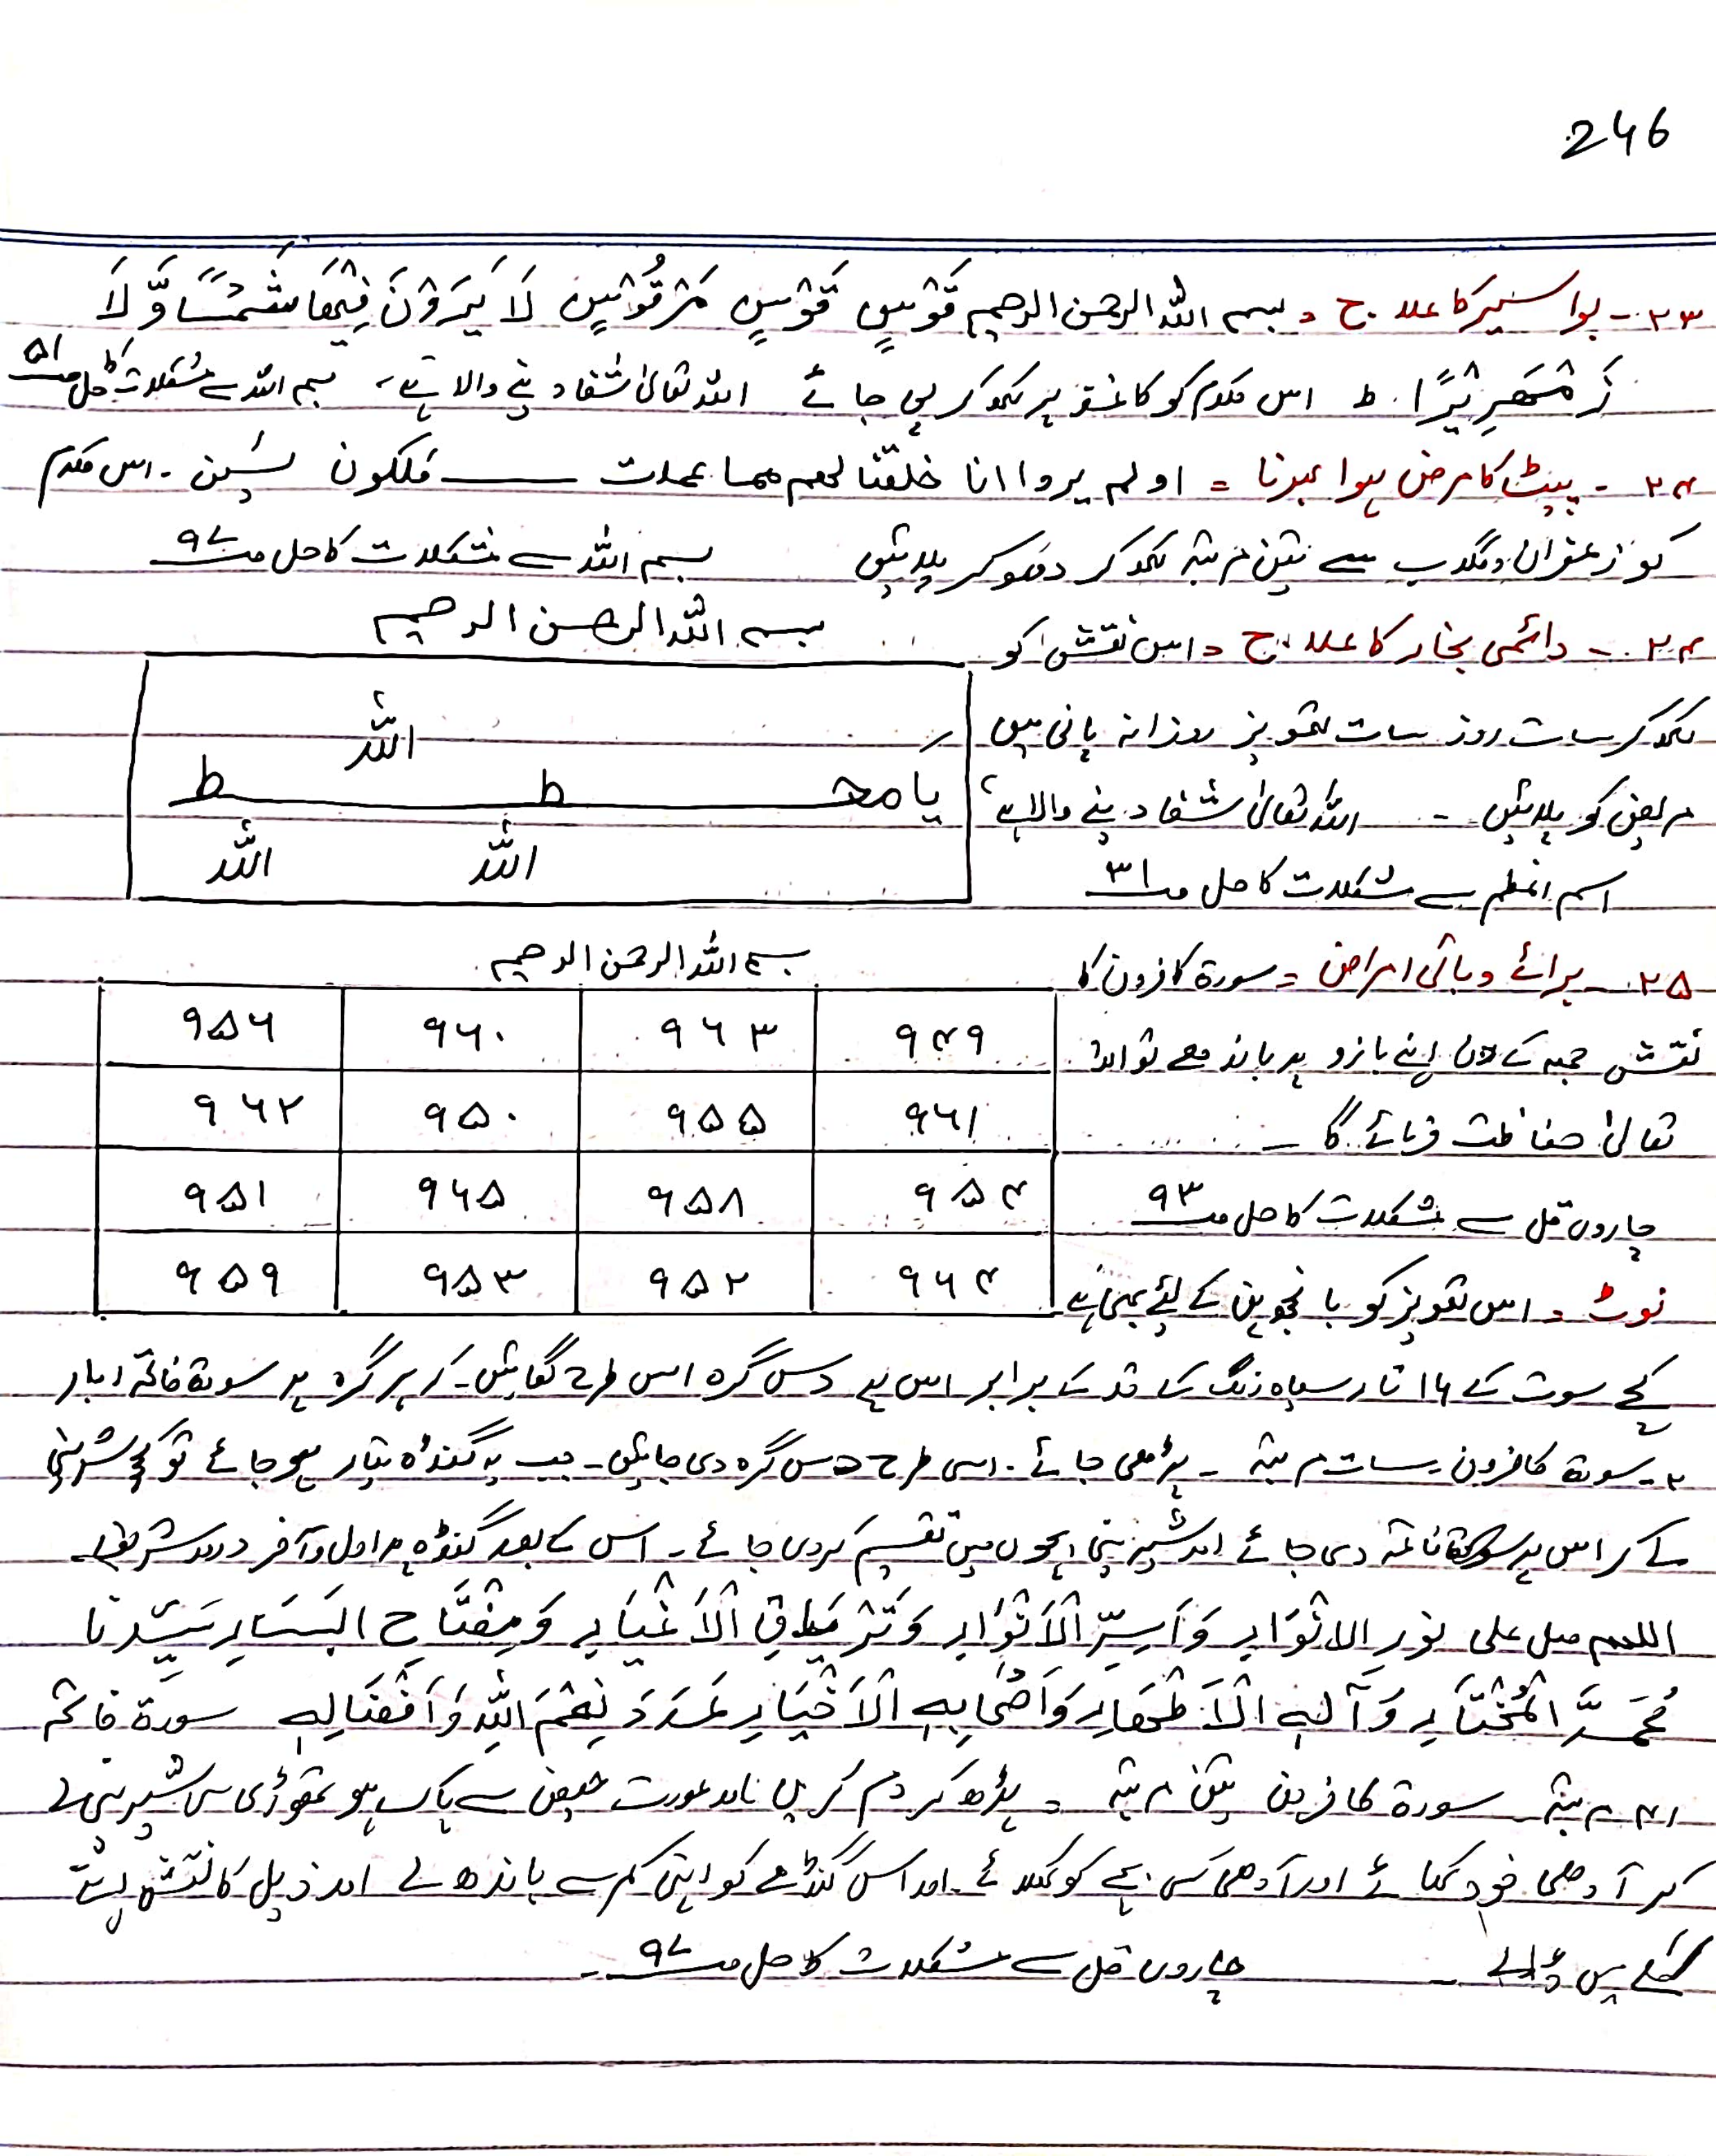 246
۲۳۔ بواسیر کا علاج = بسم اللہ الرحمن الرحیم قَوْسٍ قَوْسٍ مَرْقُوْسٍ لَا یَرَوْنَ فِیْھَا شَمْسًا وَّلَا
زَمْھَرِیْرًا ط اس کلام کو کاغذ پر لکھ کر پی جائے اللہ تعالیٰ شفا دینے والا ہے۔ بسم اللہ سے مشکلات کا حل صـ ۵۱
۲۴۔ پیٹ کا مرض ہوا بھرنا = اولم یروا انا خلقنا لھم مما عملت ــــــ فلکون یٰسین ۔ اس کلام
کو زعفران و گلاب سے تین مرتبہ لکھ کر دھو کر پلائیں بسم اللہ سے مشکلات کا حل صـ ۹۷
۲۴۔ دائمی بخار کا علاج = اس نقش کو
لکھ کر سات روز سات تعویز روزانہ پانی میں
مریض کو پلائیں ۔ اللہ تعالیٰ شفا دینے والا ہے
اسم اعظم سے مشکلات کا حل صـ ۳۱
بسم اللہ الرحمن الرحیم
اللہ
یا محـــــــــطـــــــــط
اللہ اللہ
۲۵۔ برائے وبائی امراض = سورۃ کافرون کا
نقش جمعہ کے دن اپنے بازو پر باندھے تو اللہ
تعالیٰ حفاظت فرمائے گا ۔
چاروں قل سے مشکلات کا حل صـ ۹۳
نوٹ = اس تعویز کو بانجھ پن کے لئے بھی ہے
بسم اللہ الرحمن الرحیم
۹۴۹ ۹۶۳ ۹۶۰ ۹۵۶
۹۶۱ ۹۵۵ ۹۵۰ ۹۶۲
۹۵۴ ۹۵۸ ۹۶۵ ۹۵۱
۹۶۴ ۹۵۲ ۹۵۳ ۹۵۹
کچے سوت کے ۱۶ تار سیاہ رنگ کے قد کے برابر اس پر دس گرہ اس طرح لگائیں۔ کہ ہر گرہ پر سورۃ فاتحہ ۱ بار
۲۔ سورۃ کافرون سات مرتبہ ۔ پڑھی جائے۔ اسی طرح دس گرہ دی جائیں۔ جب یہ گنڈہ تیار ہو جائے تو کچھ شرینی
لے کر اس پر فاتحہ دی جائے اور شیرینی بچوں میں تقسیم کر دی جائے۔ اس کے بعد گنڈہ پر اول و آخر درود شریف۔
اللھم صل علی نورِ الانْوَارِ وَاَسِرِّ الْاَنْوَارِ وَتَرْیَاقِ الْاَغْیَارِ وَمِفْتَاحِ الیَسَارِ سَیِّدِنَا
مُحَمَّدٍ الْمُخْتَارِ وَآلِہِ الْاَطْھَارِ وَاَصْحَابِہِ الْاَخْیَارِ عَدَدَ نِعَمَ اللّٰہِ وَاَفْضَالِہِ سورۃ فاتحہ
۴۱ مرتبہ سورۃ کافرون تین مرتبہ ۔ پڑھ کر دم کریں اور عورت حیض سے پاک ہو تھوڑی سی شیرینی لے
کر آدھی خود کھائے اور آدھی کسی بچے کو کھلائے۔ اور اس گنڈے کو اپنی کمر سے باندھ لے اور ذیل کا نقش اپنے
گلے میں ڈالے ۔ چاروں قل سے مشکلات کا حل صـ ۹۷۔